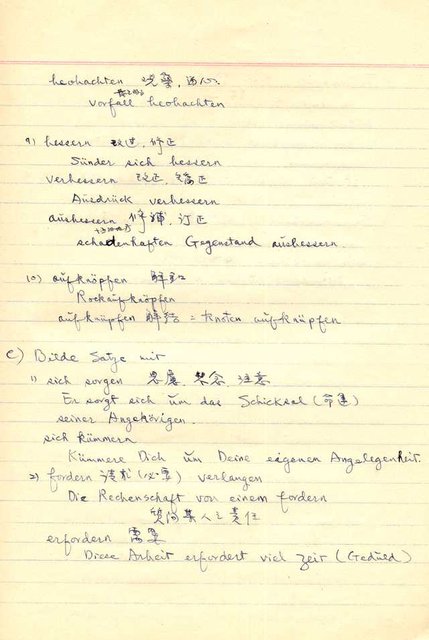 beobachten 觀察, 
vorfall beobachten
9) bessern 改过, 修正
Sünder sich bessern
verbessern 改正, 矯正
Ausdrück verbessern
ausbessern 修補, 订正
schadenhaften Gegenstand ausbessern.
10) aufknöpfen 解釦
Rockaufknöpfen
aufknüpfen 解结 = Knoten aufknüpfen
C) Bilde Sätze mit
1) sich sorgen 思慮, 挈念, 注意
Er sorgt sich um das Schicksal (命運)
seiner Angehörigen.
sich kümmern
Kümmere Dich um Deine eigenen Angelegenheit.
2) fordern 請求 (必要) verlangen
Die Rechenschaft von einem fordern
質问某人之責任
erfordern 需要
Diese Arbeit erfordert viel Zeit (Gedüld)